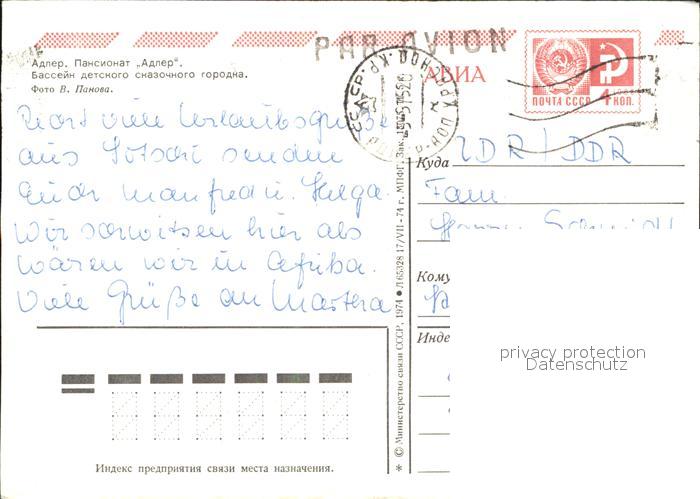 PAR AVION
Адлер. Пансионат „Адлер".
Бассейн детского сказочного городка.
Фото В. Панова.
АВИА
ПОЧТА СССР 4 КОП.
viele Urlaubsgrüße
aus Sotschi senden
Euch Manfred u. Helga.
Wir schwitzen hier als
wären wir in Afrika.
Viele Grüße an Martha
Куда
/ DDR
Fam.
Кому
Инде
privacy protection
Datenschutz
Индекс предприятия связи места назначения.
* © Министерство связи СССР, 1974 ● Л 65328 17/VII-74 г. МПФГ. Зак.